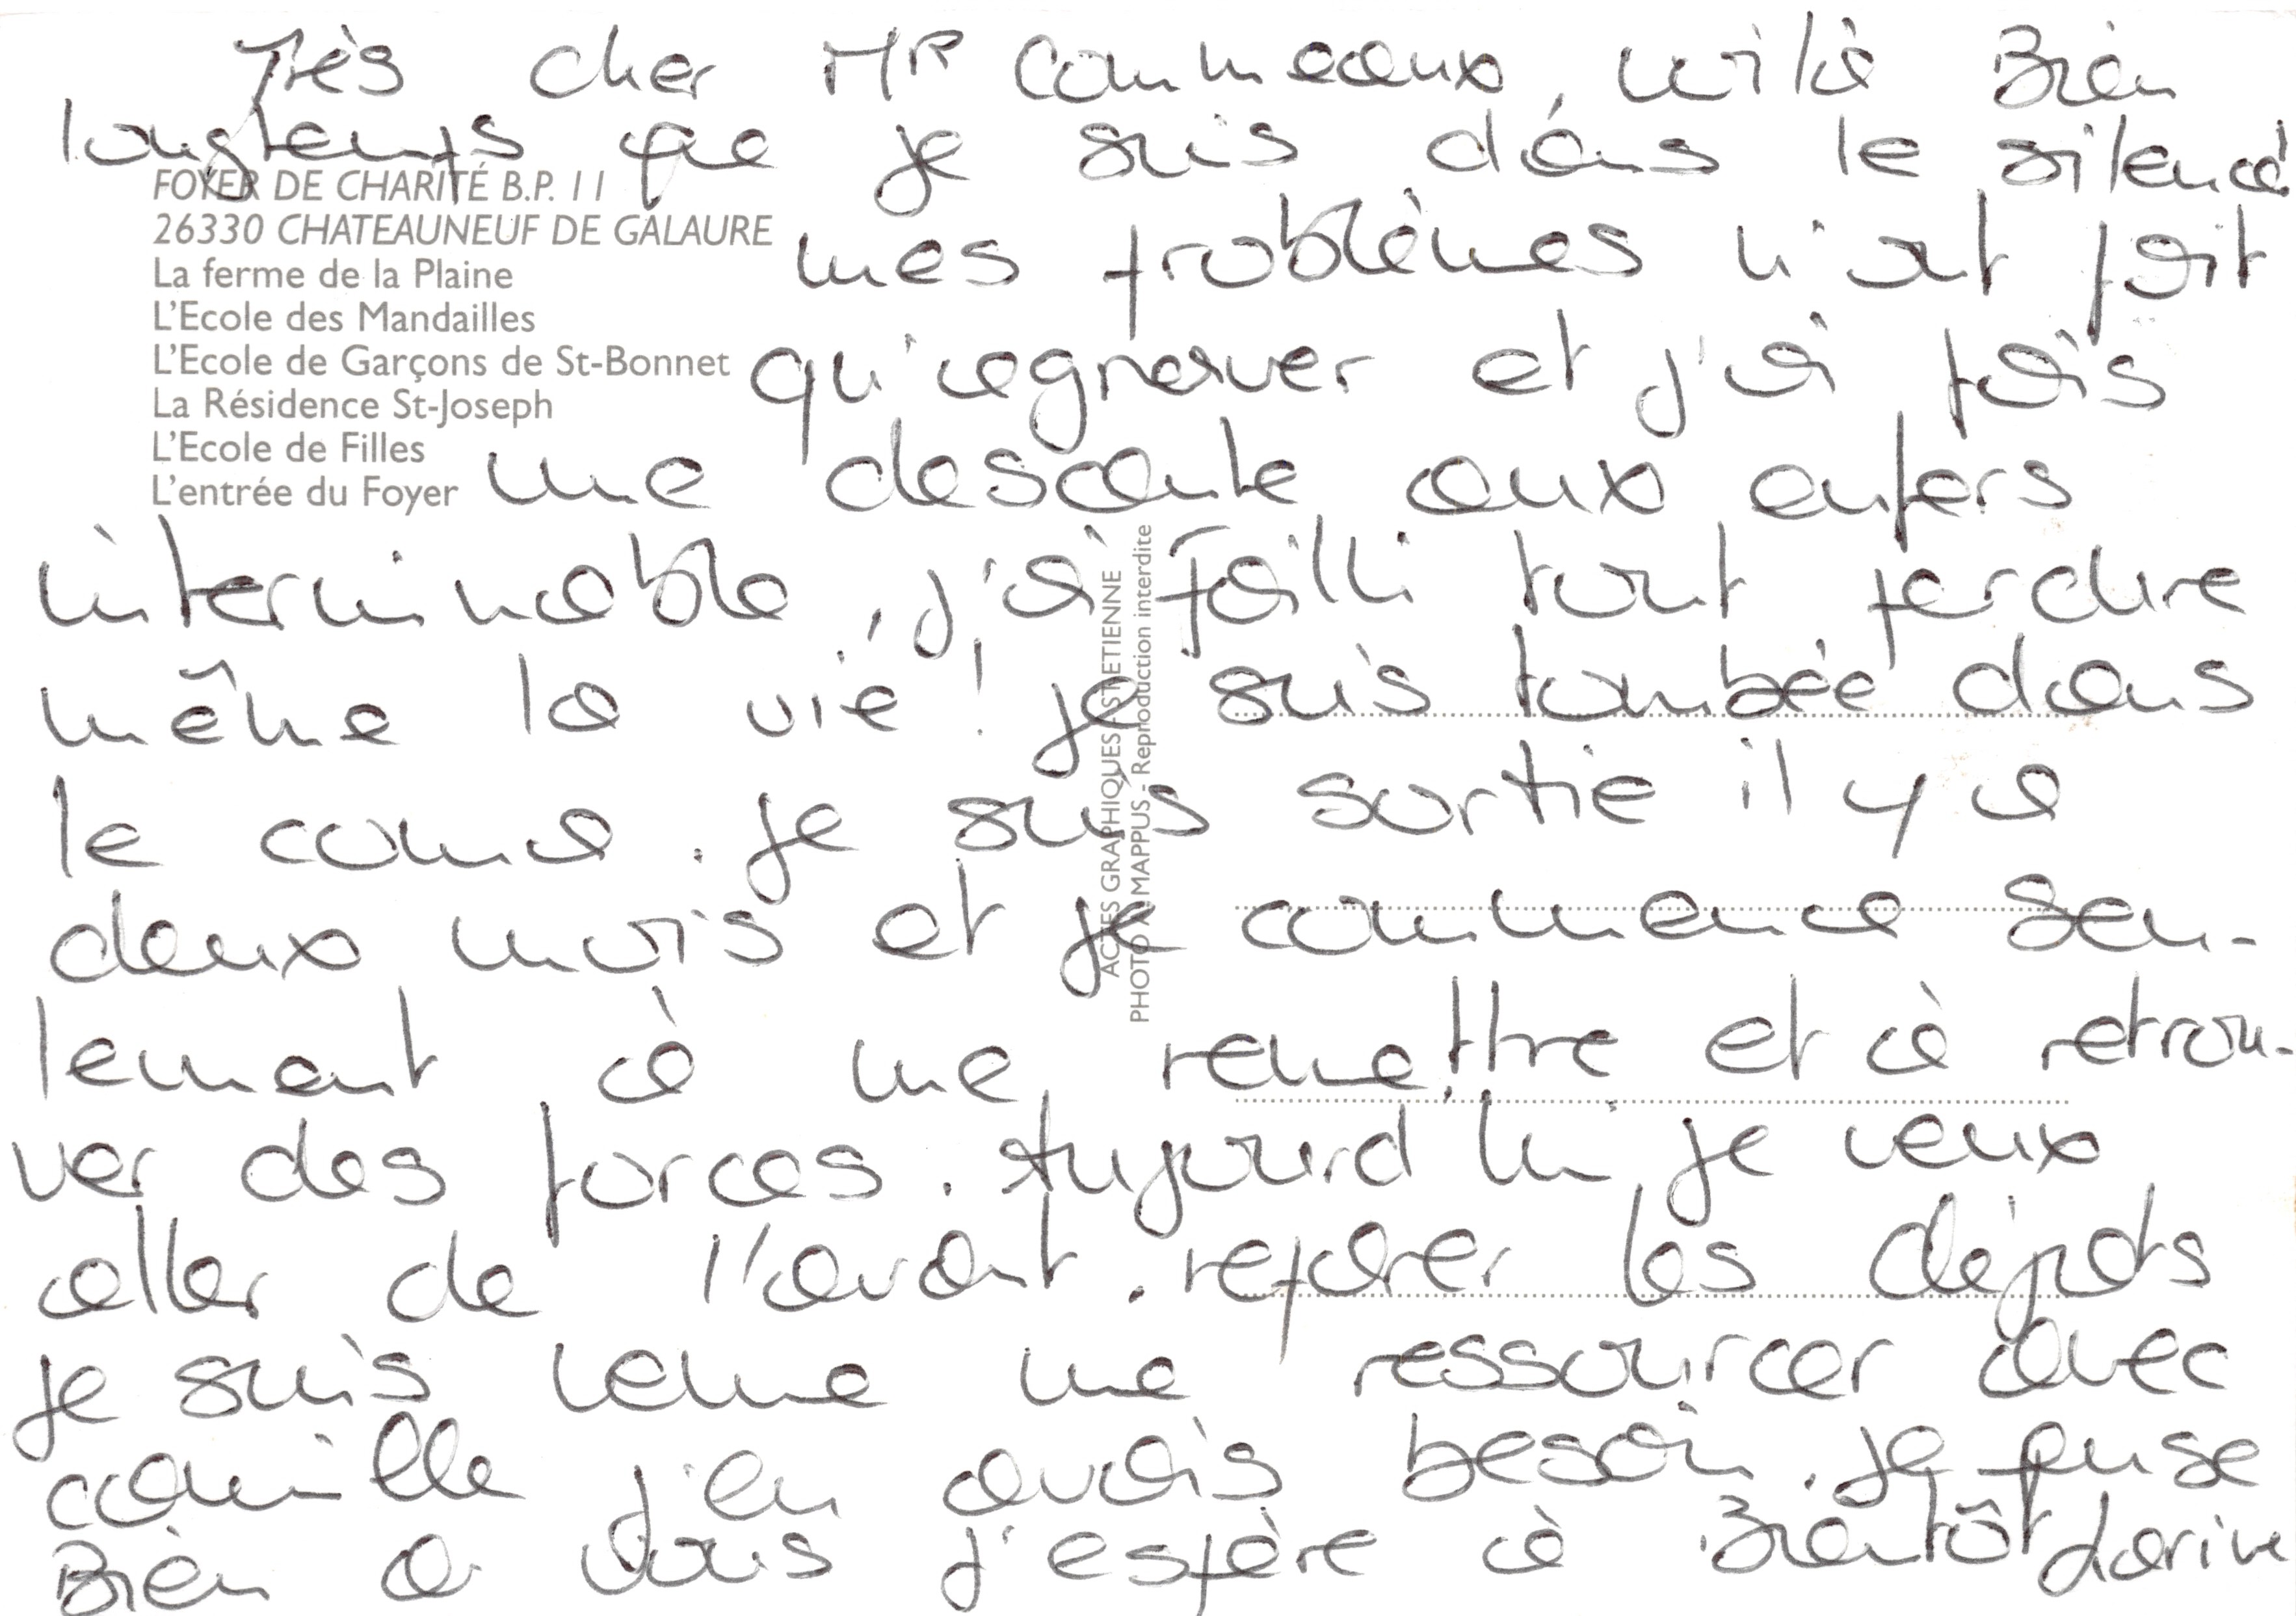 Très cher Mr Commeaux, voilà Bien
longtemps que je suis dans le silence
FOYER DE CHARITÉ B.P. 11
26330 CHATEAUNEUF DE GALAURE
La ferme de la Plaine
L'Ecole des Mandailles
L'Ecole de Garçons de St-Bonnet
La Résidence St-Joseph
L'Ecole de Filles
L'entrée du Foyer
mes problèmes n'ont fait
qu'aggraver et j'ai fais
une descente aux enfers
interminable, j'ai failli tout perdre
même la vie ! je suis tombée dans
le coma. je suis sortie il y a
deux mois et je commence seu-
lement à me remettre et à retrou-
ver des forces. Aujourd'hui je veux
aller de l'avant. reparer les dépots
je suis venue me ressourcer avec
camille j'en avais besoin. je pense
Bien à vous j'espère à Bientôt
ACTES GRAPHIQUES - ST-ETIENNE
PHOTO X MAPPUS - Reproduction interdite